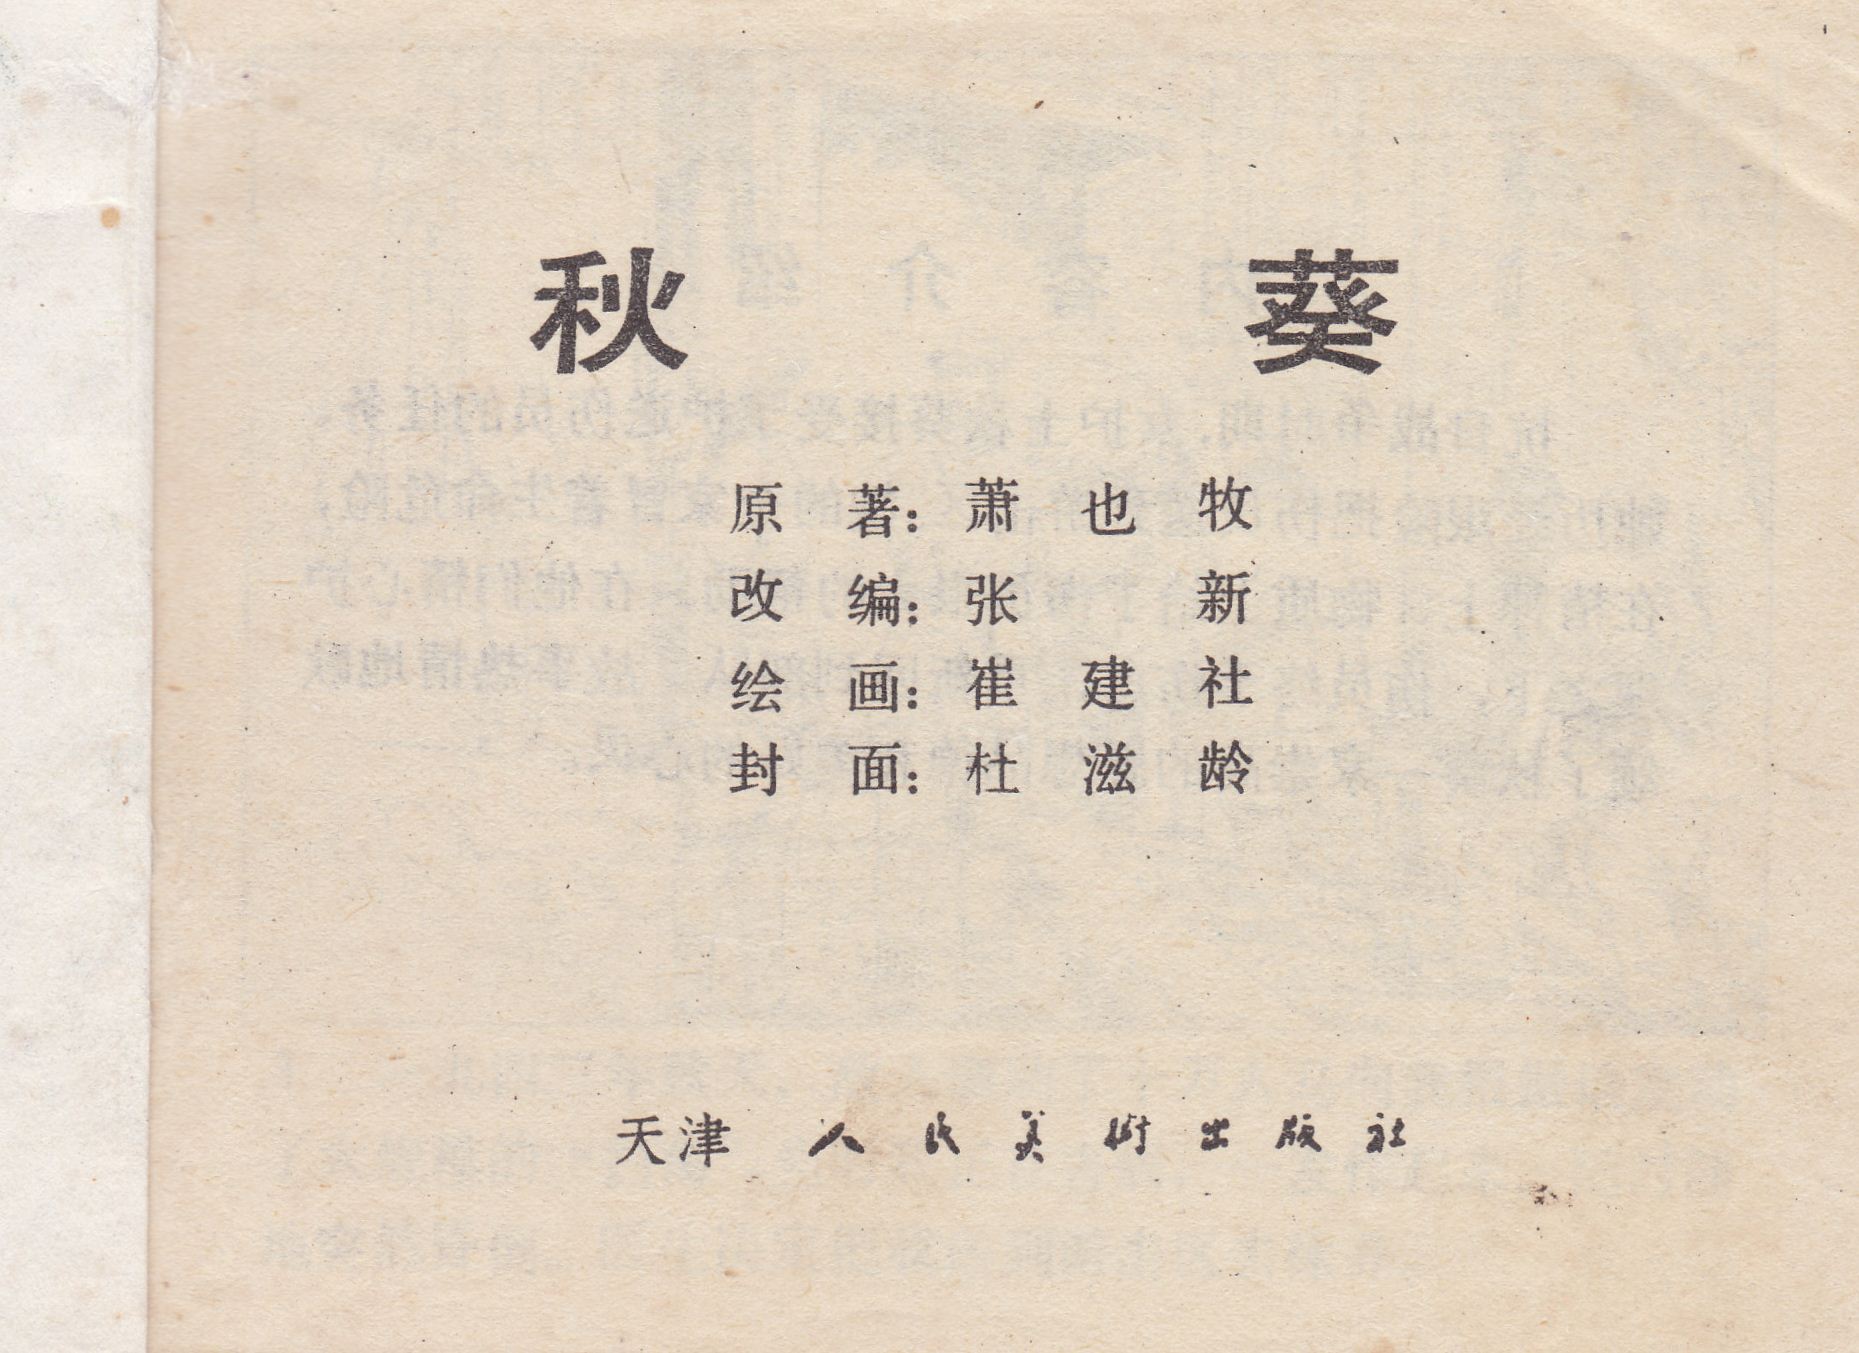 秋葵
原著：萧也牧
改编：张新
绘画：崔建社
封面：杜滋龄
天津人民美術出版社